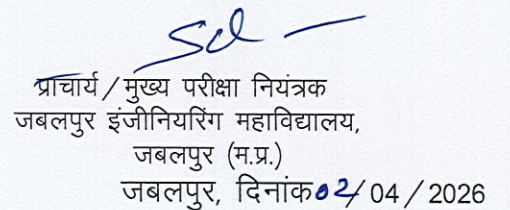 Sd —
प्राचार्य / मुख्य परीक्षा नियंत्रक
जबलपुर इंजीनियरिंग महाविद्यालय,
जबलपुर (म.प्र.)
जबलपुर, दिनांक 02/ 04 / 2026